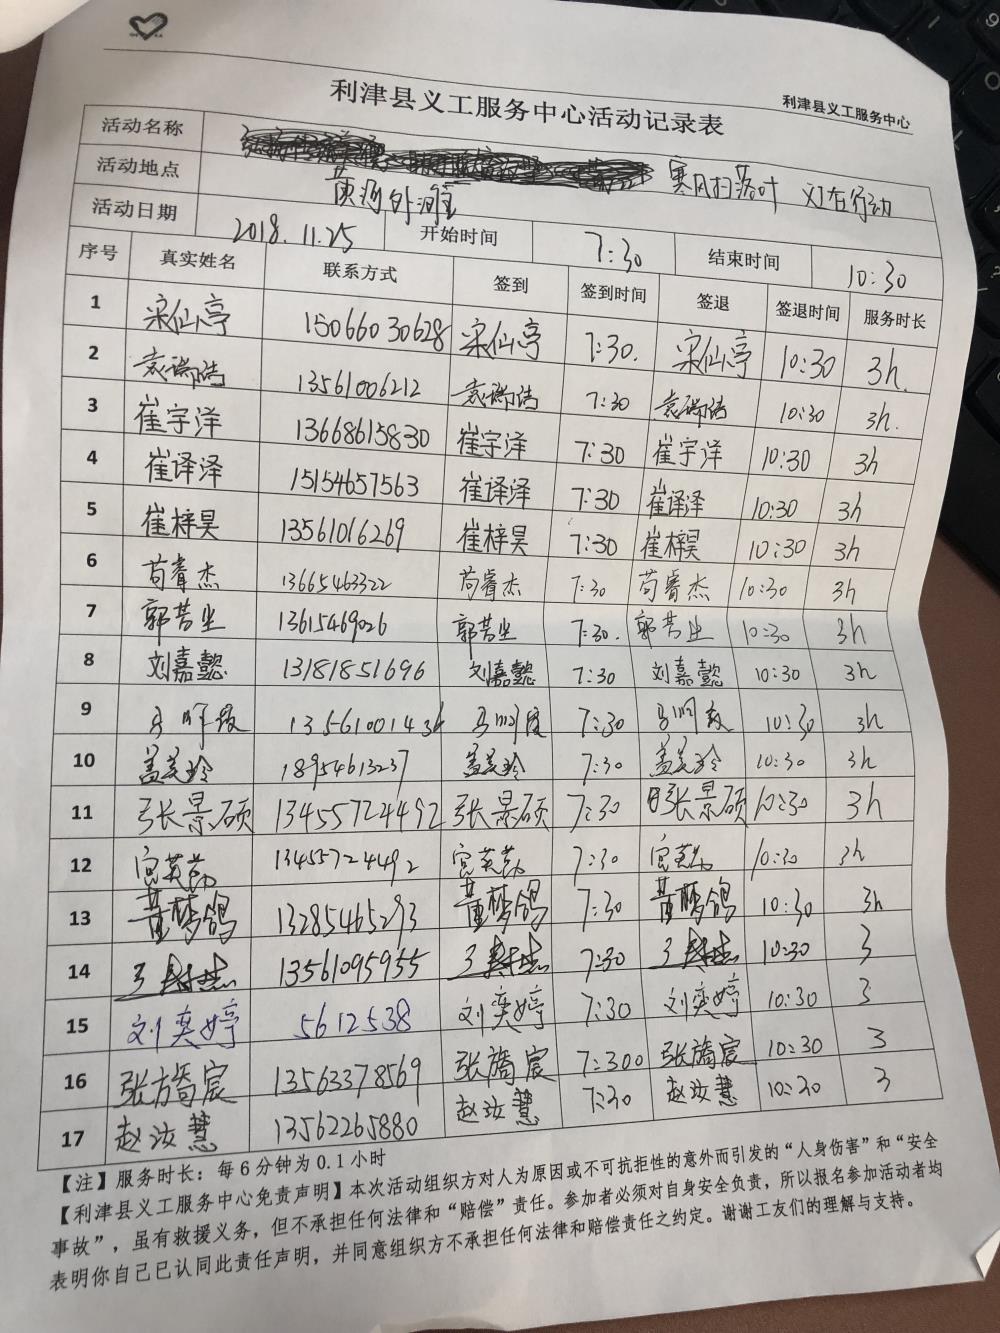 利津县义工服务中心
利津县义工服务中心活动记录表
活动名称 寒风扫落叶 义在行动
活动地点 黄河外滩
活动日期 2018.11.25 开始时间 7:30 结束时间 10:30
序号 真实姓名 联系方式 签到 签到时间 签退 签退时间 服务时长
1 宋仙亭 15066030628 宋仙亭 7:30. 宋仙亭 10:30 3h.
2 袁瑞浩 13561006212 袁瑞浩 7:30 袁瑞浩 10:30 3h.
3 崔宇洋 13668615830 崔宇洋 7:30 崔宇洋 10:30 3h
4 崔译泽 15154657563 崔译泽 7:30 崔译泽 10:30 3h
5 崔梓昊 13561016269 崔梓昊 7:30 崔梓昊 10:30 3h
6 苟睿杰 13665463322 苟睿杰 7:30 苟睿杰 10:30 3h
7 郭芳生 13615469026 郭芳生 7:30. 郭芳生 10:30 3h
8 刘嘉懿 13181851696 刘嘉懿 7:30 刘嘉懿 10:30 3h
9 1356100143 7:30 10:30 3h
10 盖美玲 18954613237 盖美玲 7:30 盖美玲 10:30 3h
11 张景硕 13455724492 张景硕 7:30 张景硕 10:30 3h
12 13455724492 7:30 10:30 3h
13 董梦鸽 13285465293 董梦鸽 7:30 董梦鸽 10:30 3h
14 13561095955 7:30 10:30 3
15 刘奕婷 5612538 刘奕婷 7:30 刘奕婷 10:30 3
16 张旖宸 13563378569 张旖宸 7:300 张旖宸 10:30 3
17 赵汝慧 13562265880 赵汝慧 7:30 赵汝慧 10:30 3
【注】服务时长：每6分钟为0.1小时
【利津县义工服务中心免责声明】本次活动组织方对人为原因或不可抗拒性的意外而引发的“人身伤害”和“安全
事故”，虽有救援义务，但不承担任何法律和“赔偿”责任。参加者必须对自身安全负责，所以报名参加活动者均
表明你自己已认同此责任声明，并同意组织方不承担任何法律和赔偿责任之约定。谢谢工友们的理解与支持。